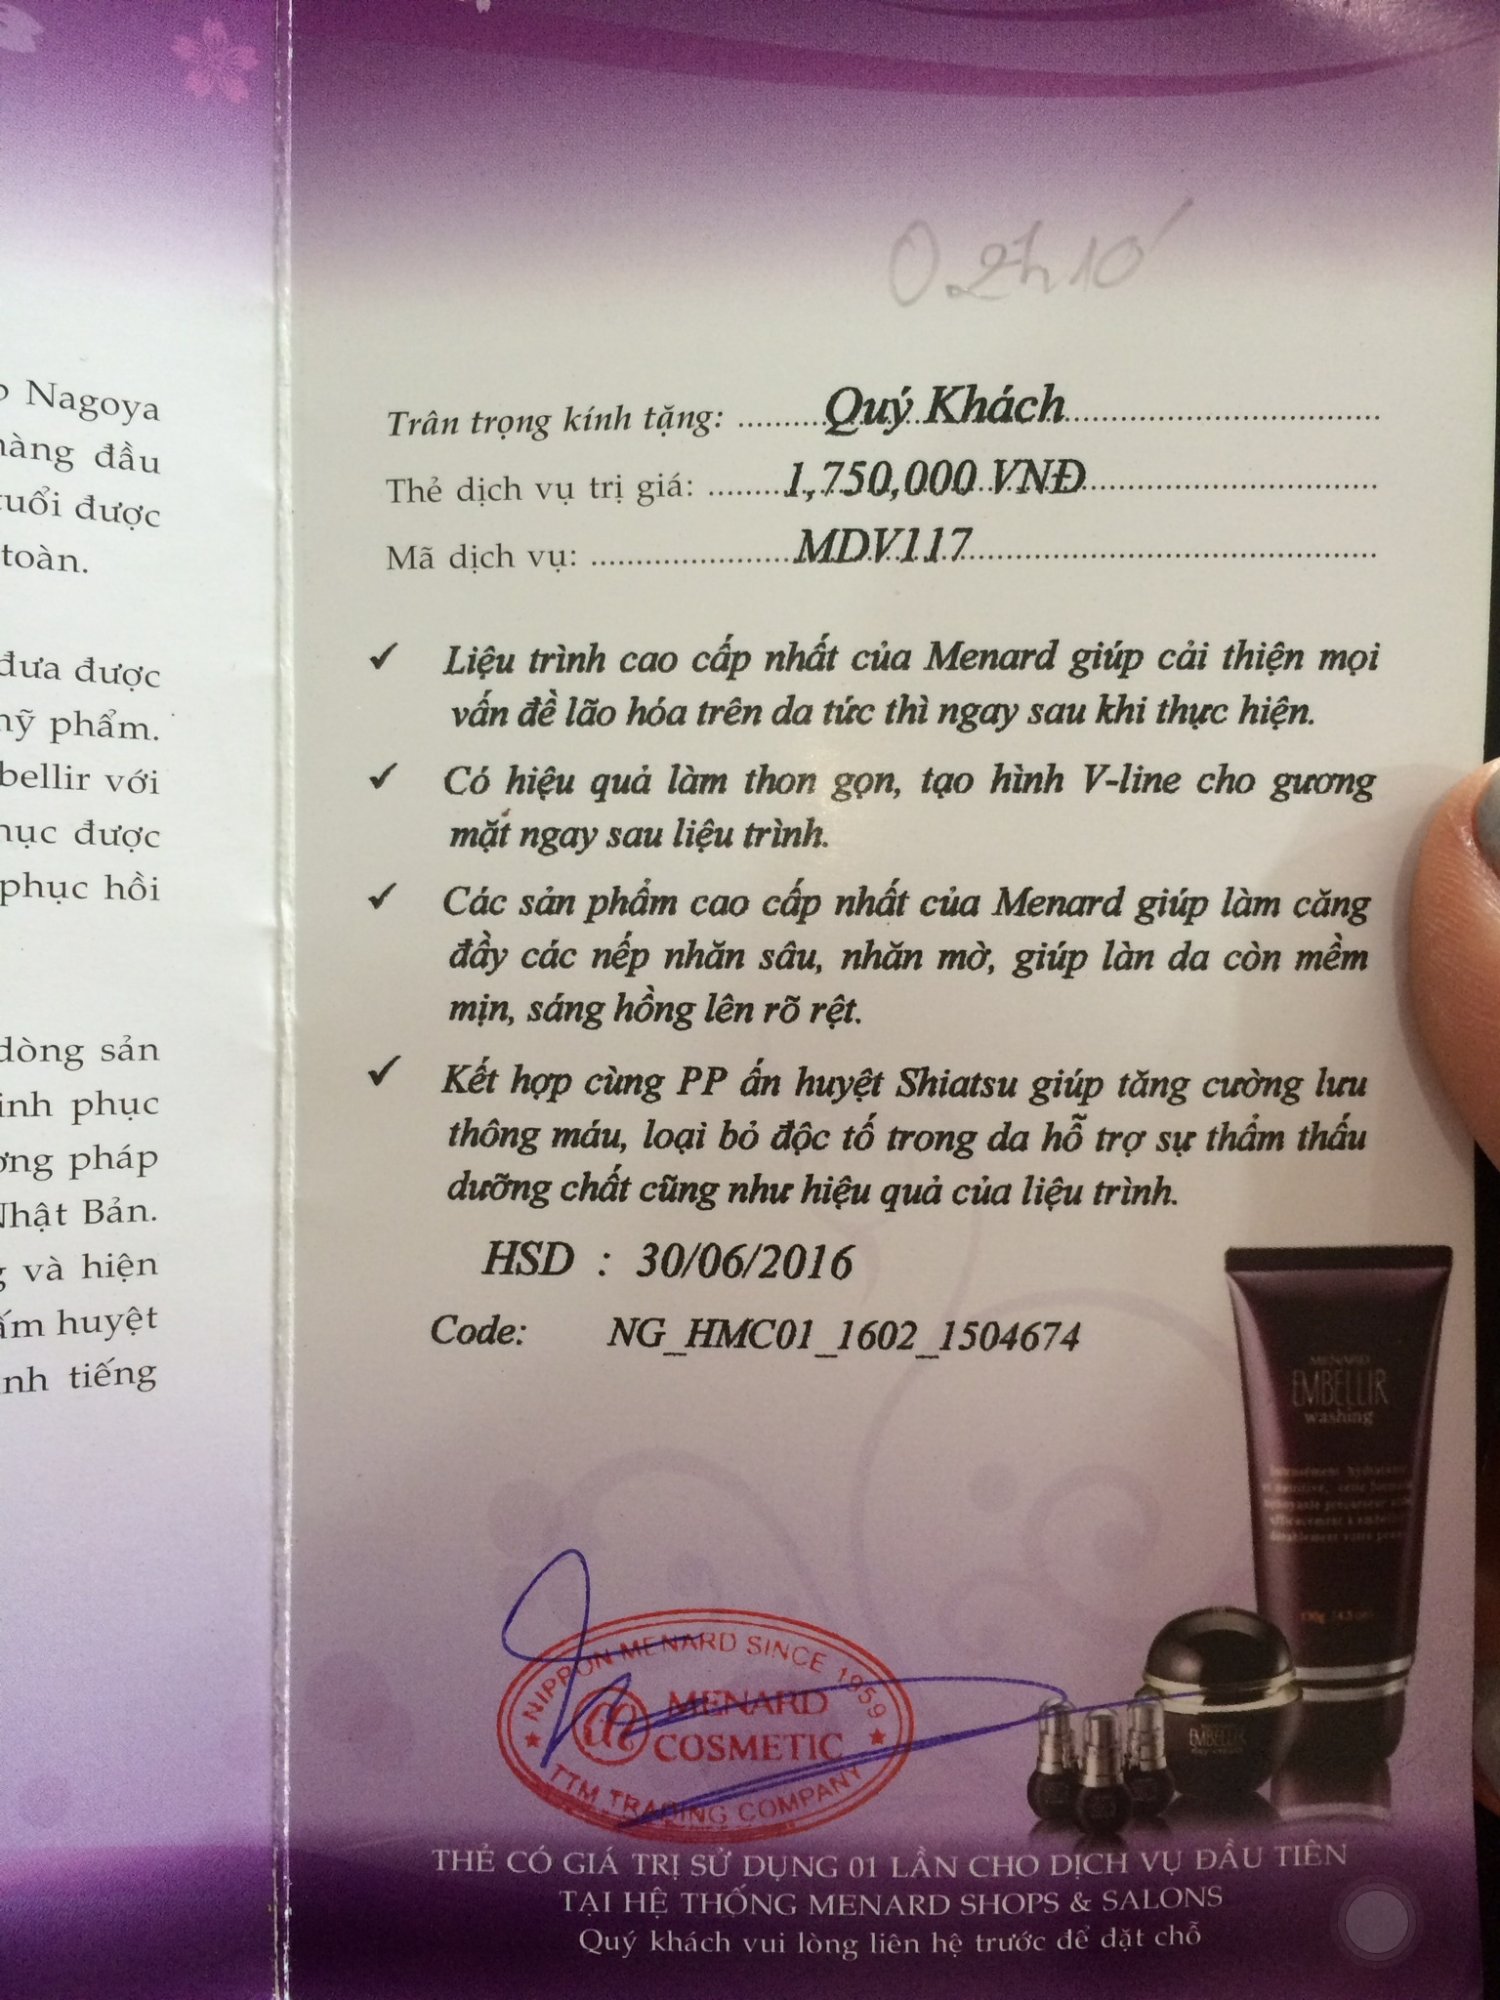 Nagoya
hàng đầu
tuổi được
toàn.
đưa được
mỹ phẩm.
bellir với
phục được
phục hồi
dòng sản
inh phục
pháp
Nhật Bản.
và hiện
ấm huyệt
tiếng
0.2h10'
Trân trọng kính tặng: Quý Khách
Thẻ dịch vụ trị giá: 1,750,000 VNĐ
Mã dịch vụ: MDV117
✓ Liệu trình cao cấp nhất của Menard giúp cải thiện mọi
vấn đề lão hóa trên da tức thì ngay sau khi thực hiện.
✓ Có hiệu quả làm thon gọn, tạo hình V-line cho gương
mặt ngay sau liệu trình.
✓ Các sản phẩm cao cấp nhất của Menard giúp làm căng
đầy các nếp nhăn sâu, nhăn mờ, giúp làn da còn mềm
mịn, sáng hồng lên rõ rệt.
✓ Kết hợp cùng PP ấn huyệt Shiatsu giúp tăng cường lưu
thông máu, loại bỏ độc tố trong da hỗ trợ sự thẩm thấu
dưỡng chất cũng như hiệu quả của liệu trình.
HSD : 30/06/2016
Code: NG_HMC01_1602_1504674
MENARD
EMBELLIR
washing
NIPPON MENARD SINCE 1959
MENARD
COSMETIC
TTM TRADING COMPANY
EMBELLIR
THẺ CÓ GIÁ TRỊ SỬ DỤNG 01 LẦN CHO DỊCH VỤ ĐẦU TIÊN
TẠI HỆ THỐNG MENARD SHOPS & SALONS
Quý khách vui lòng liên hệ trước để đặt chỗ